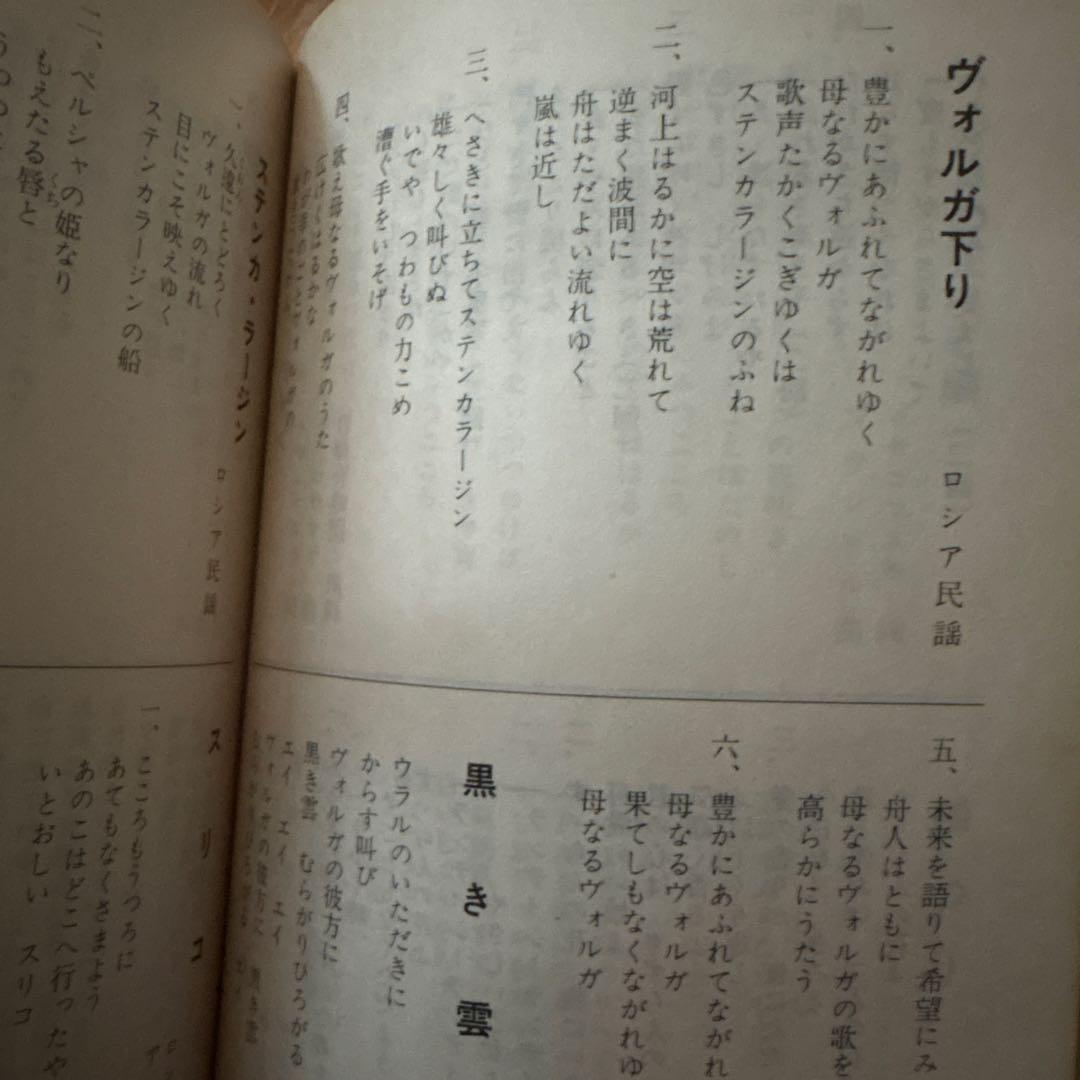 ヴォルガ下り
ロシア民謡
一、豊かにあふれてながれゆく
母なるヴォルガ
歌声たかくこぎゆくは
ステンカラージンのふね
二、河上はるかに空は荒れて
逆まく波間に
舟はただよい流れゆく
嵐は近し
三、へさきに立ちてステンカラージン
雄々しく叫びぬ
いでや つわもの力こめ
漕ぐ手をいそげ
四、歌え母なるヴォルガのうた
広けくはるかな
五、未来を語りて希望にみ
舟人はともに
母なるヴォルガの歌を
高らかにうたう
六、豊かにあふれてながれ
母なるヴォルガ
果てしもなくながれゆ
母なるヴォルガ
黒き雲
ウラルのいただきに
からす叫び
ヴォルガの彼方に
黒き雲 むらがりひろがる
エイ エイ エイ
ヴォルガの彼方に 黒き雲
ステンカ・ラージン
ロシア民謡
一、久遠にとどろく
ヴォルガの流れ
目にこそ映えゆく
ステンカラージンの船
二、ペルシャの姫なり
もえたる唇と
くち
スリコ
一、こころもうつろに
あてもなくさまよう
あのこはどこへ行ったや
いとおしい スリコ